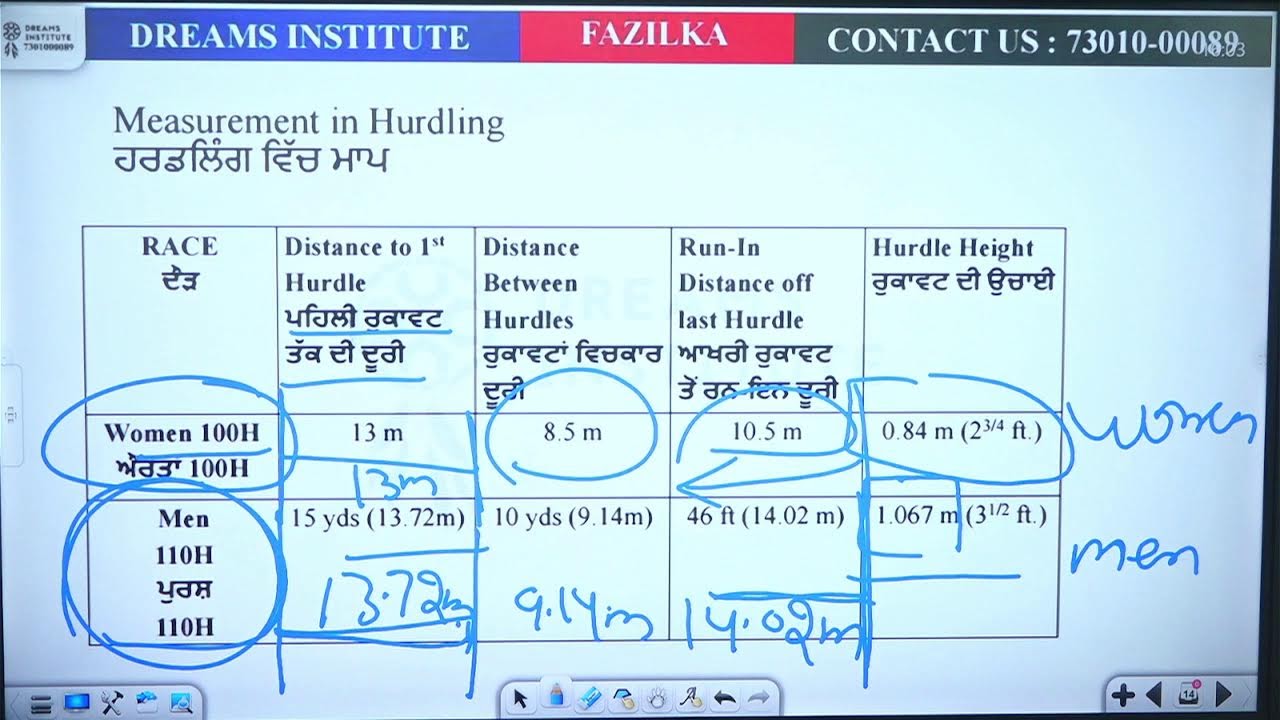 DREAMS
INSTITUTE
7301000089
DREAMS INSTITUTE
FAZILKA
CONTACT US : 73010-00089
Measurement in Hurdling
ਹਰਡਲਿੰਗ ਵਿੱਚ ਮਾਪ
RACE
ਦੌੜ
Distance to 1st
Hurdle
ਪਹਿਲੀ ਰੁਕਾਵਟ
ਤੱਕ ਦੀ ਦੂਰੀ
Distance
Between
Hurdles
ਰੁਕਾਵਟਾਂ ਵਿਚਕਾਰ
ਦੂਰੀ
Run-In
Distance off
last Hurdle
ਆਖਰੀ ਰੁਕਾਵਟ
ਤੋਂ ਰਨ-ਇਨ ਦੂਰੀ
Hurdle Height
ਰੁਕਾਵਟ ਦੀ ਉਚਾਈ
Women 100H
ਔਰਤਾ 100H
13 m
13m
8.5 m
10.5 m
0.84 m (2 3/4 ft.)
women
Men
110H
ਪੁਰਸ਼
110H
15 yds (13.72m)
13.72m
10 yds (9.14m)
9.14m
46 ft (14.02 m)
14.02m
1.067 m (3 1/2 ft.)
men
14